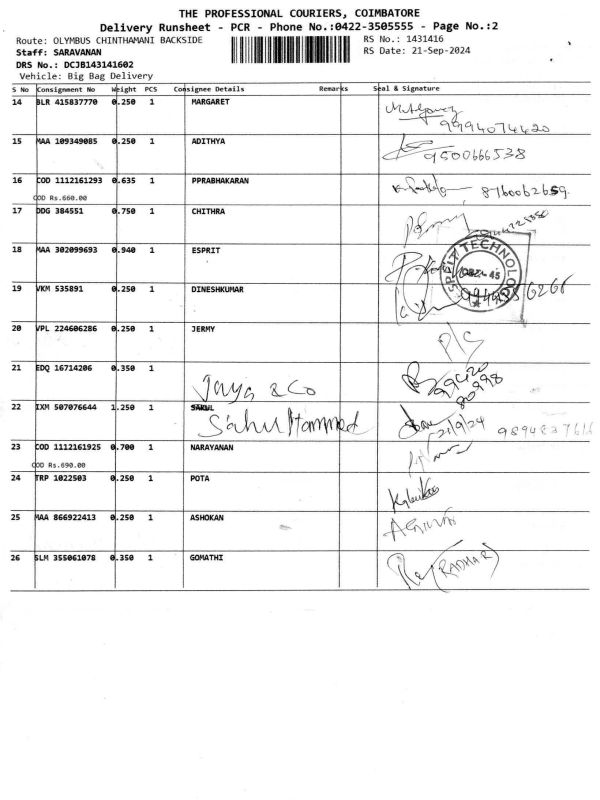 THE PROFESSIONAL COURIERS, COIMBATORE
Delivery Runsheet - PCR - Phone No.:0422-3505555 - Page No.:2
Route: OLYMBUS CHINTHAMANI BACKSIDE RS No.: 1431416
Staff: SARAVANAN RS Date: 21-Sep-2024
DRS No.: DCJB143141602
Vehicle: Big Bag Delivery
S No Consignment No Weight PCS Consignee Details Remarks Seal & Signature
14 BLR 415837770 0.250 1 MARGARET
9994074420
15 MAA 109349085 0.250 1 ADITHYA
9500666538
16 COD 1112161293 0.635 1 PPRABHAKARAN 8760062659
COD Rs.660.00
17 DDG 384551 0.750 1 CHITHRA
18 MAA 302099693 0.940 1 ESPRIT
19 VKM 535891 0.250 1 DINESHKUMAR
20 VPL 224606286 0.250 1 JERMY
21 EDQ 16714206 0.350 1
Jaya & Co
22 IXM 507076644 1.250 1 SAKUL
21/9/24 9894837616
23 COD 1112161925 0.700 1 NARAYANAN
COD Rs.690.00
24 TRP 1022503 0.250 1 POTA
25 MAA 866922413 0.250 1 ASHOKAN
26 SLM 355061078 0.350 1 GOMATHI
(RADHAR)